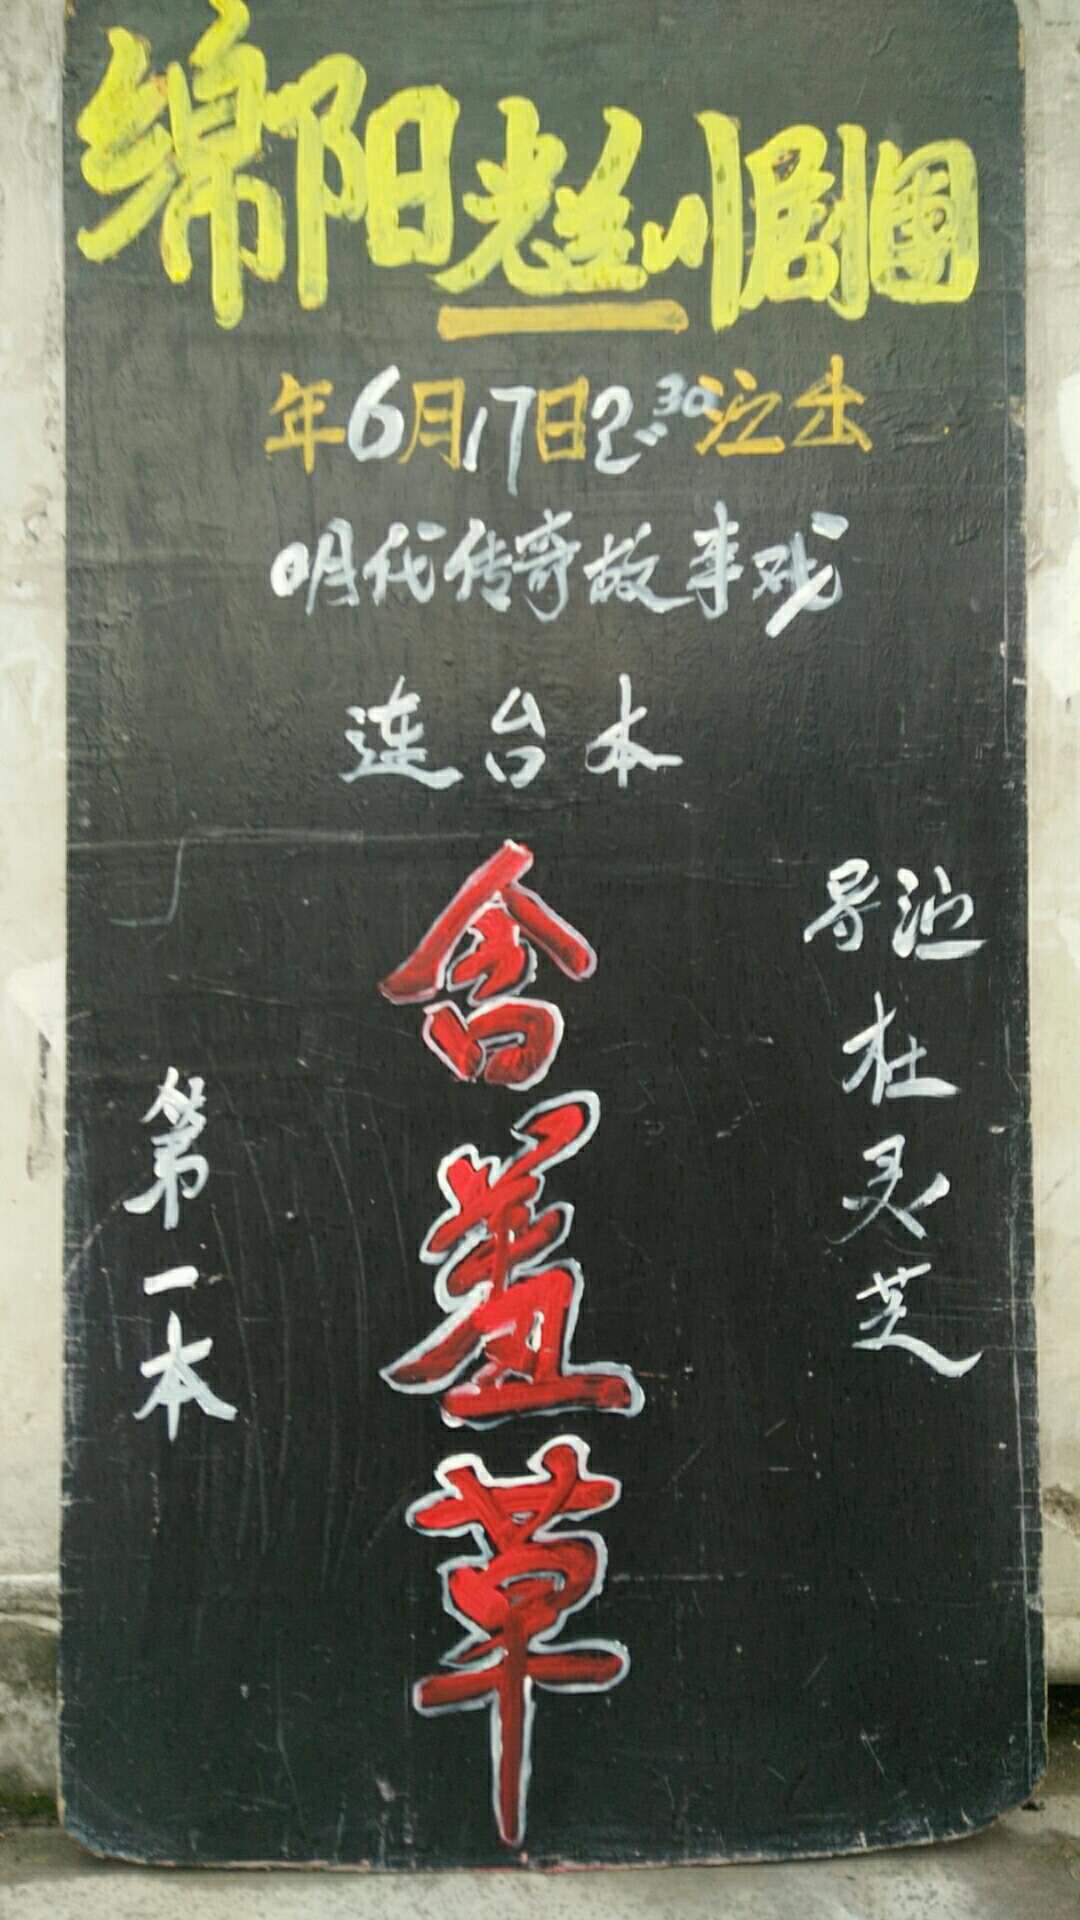 绵阳川剧團
年6月17日2:30演出
明代传奇故事戏
连台本
导演
杜灵芝
含羞草
第一本